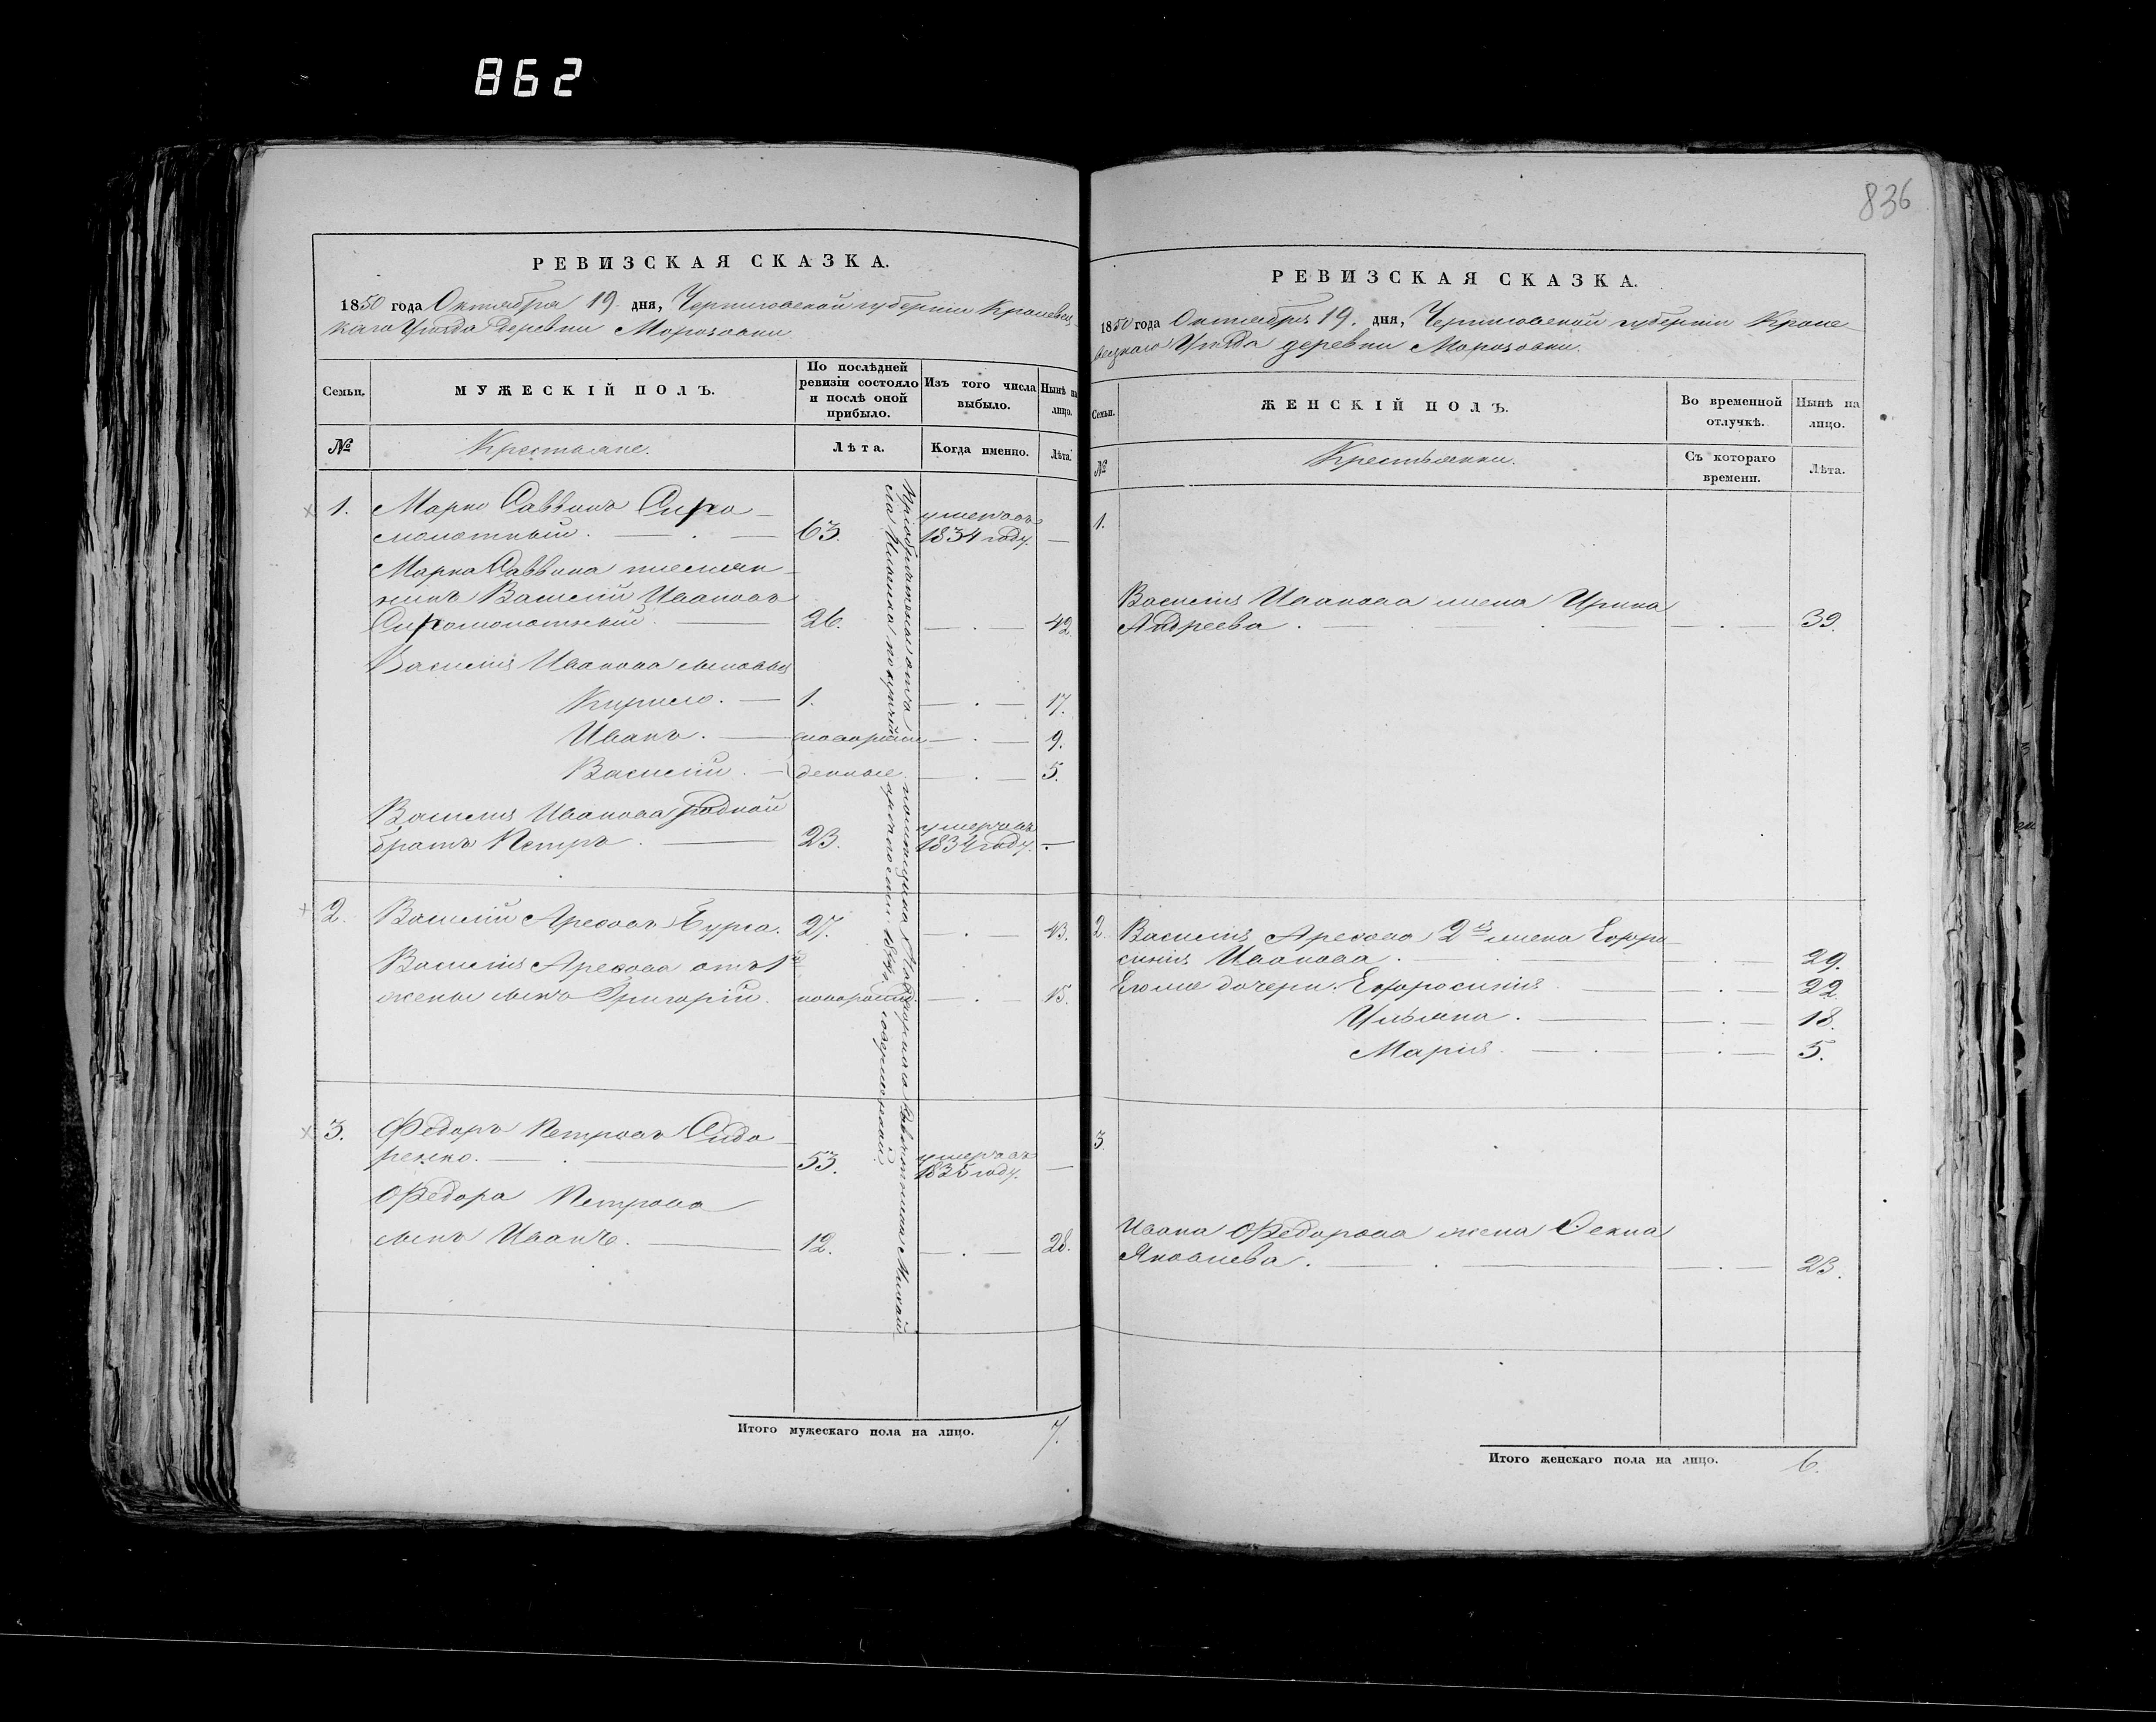 862
836
РЕВИЗСКАЯ СКАЗКА.
1850 года Октября 19 дня, Черниговской губернии Кролевец-
каго Уезда деревни Морозовки.
Семьи.
МУЖЕСКІЙ ПОЛЪ.
По послѣдней ревизіи состояло и послѣ оной прибыло.
Изъ того числа выбыло.
Нынѣ на лицо.
№
Крестьяне.
Лѣта.
Когда именно.
Лѣта.
1. Марко Саввинъ Сыро-
молотный. 63. умеръ въ 1834 году. —
Марка Саввина племян-
никъ Василий Ивановъ
Сыромолотный 26. — . — 42.
Василия Иванова сыновья
Кирило. — 1. — . — 17.
Иванъ. — новорож- — . — 9.
Василий. — денные — . — 5.
Василия Иванова родной
братъ Петръ. 23. умеръ въ 1834 году. —
2. Василий Арехов 27. — . — 43.
Василия Арехова отъ 1й
жены сынъ Григорій. новорожд. — . — 15.
3. Федоръ Петровъ Сидо-
ренко. 53. умеръ въ 1835 году. —
Федора Петрова
сынъ Иванъ. 12. — . — 28.
Итого мужескаго пола на лицо. 7.
РЕВИЗСКАЯ СКАЗКА.
1850 года Октября 19. дня, Черниговской губернии Кроле-
вецкаго Уезда деревни Морозовки.
Семьи.
ЖЕНСКІЙ ПОЛЪ.
Во временной отлучкѣ.
Нынѣ на лицо.
№
Крестьянки.
Съ котораго времени.
Лѣта.
1.
Василия Иванова жена Ирина
Андреева. — . — 39.
2. Василия Арехова 2я жена Ефро-
синия Иванова. — . — 29.
Его же дочери. Ефросиния — . — 22.
Ульяна. — . — 18.
Мария. — . — 5.
3
Ивана Федорова жена Фекла
Яковлева. — . — 23.
Итого женскаго пола на лицо. 6.